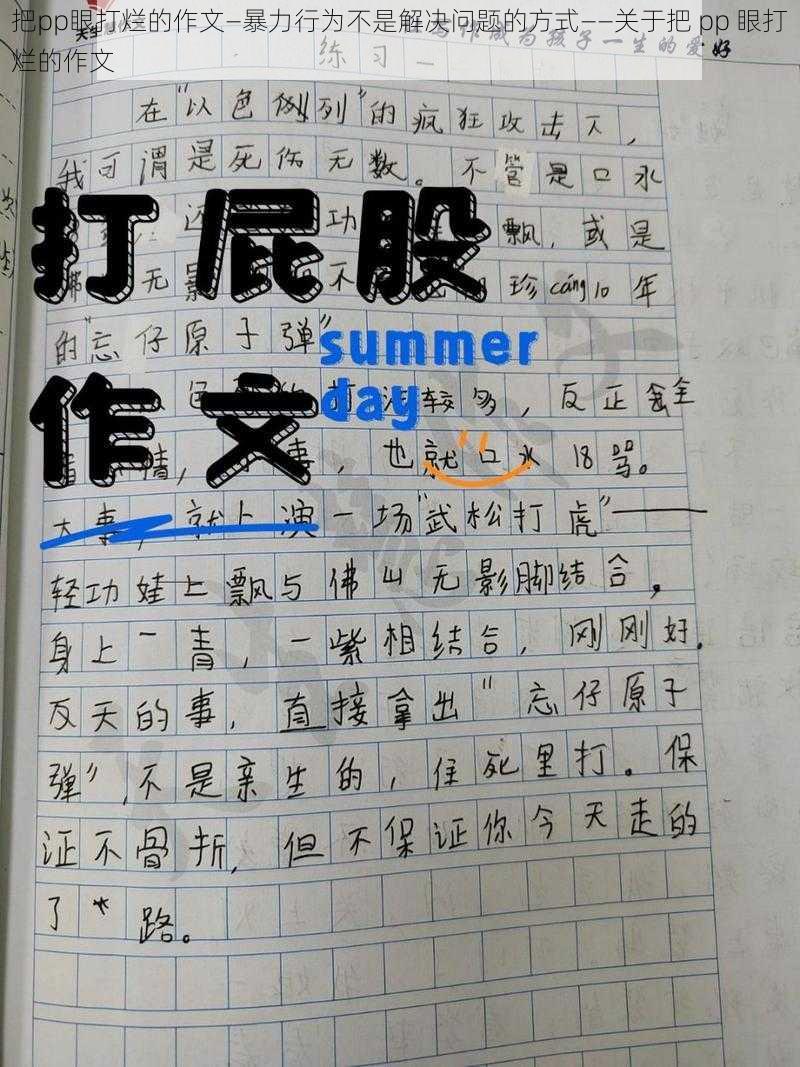 把pp眼打烂的作文—暴力行为不是解决问题的方式——关于把 pp 眼打
烂的作文
写作成为孩子一生的爱好
练习一
在“以色列”的疯狂攻击下，
我可谓是死伤无数。不管是口水
还 功 飘，或是
无影 不 珍cáng10年
的“忘仔原子弹”
打屁股
summer
day
作文
打法较多，反正
事，也就口水18骂。
大事，就上演一场“武松打虎”——
轻功娃上飘与佛山无影脚结合，
身上一青，一紫相结合，刚刚好.
反天的事，直接拿出“忘仔原子
弹”，不是亲生的，往死里打。保
证不骨折，但不保证你今天走的
了*路。